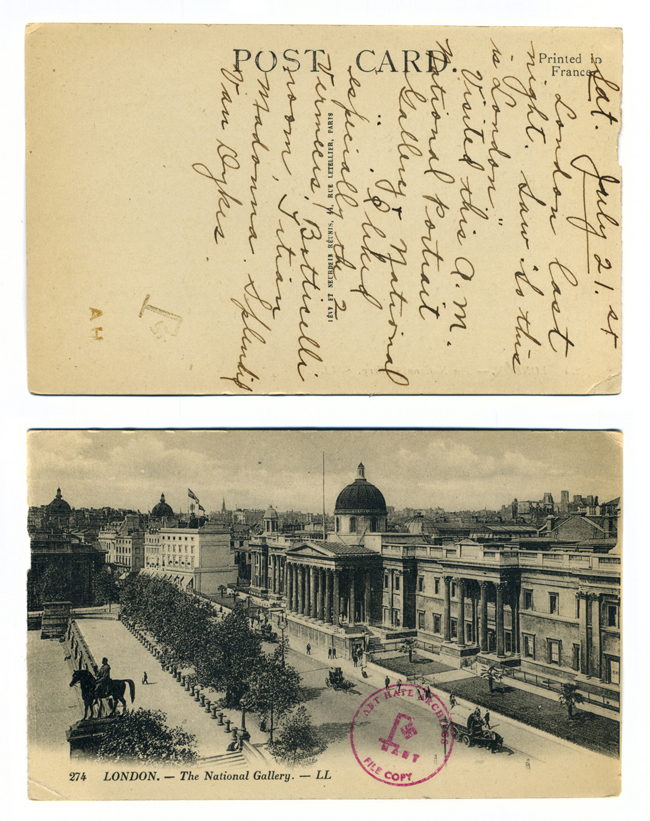 POST CARD.
Printed in
France
Sat. July 21. st
London last
night. Saw "So this
is London"
Visited this A.M.
National Portrait
Gallery & National
" . Liked
especially the 2
Vermeers, Botticelli
room, Titian
Madonna. Splendid
Van Dykes.
LÉVY ET NEURDEIN RÉUNIS, 44, RUE LETELLIER, PARIS
AH
ART HATE ARCHIVE
FILE COPY
274 LONDON. — The National Gallery. — LL